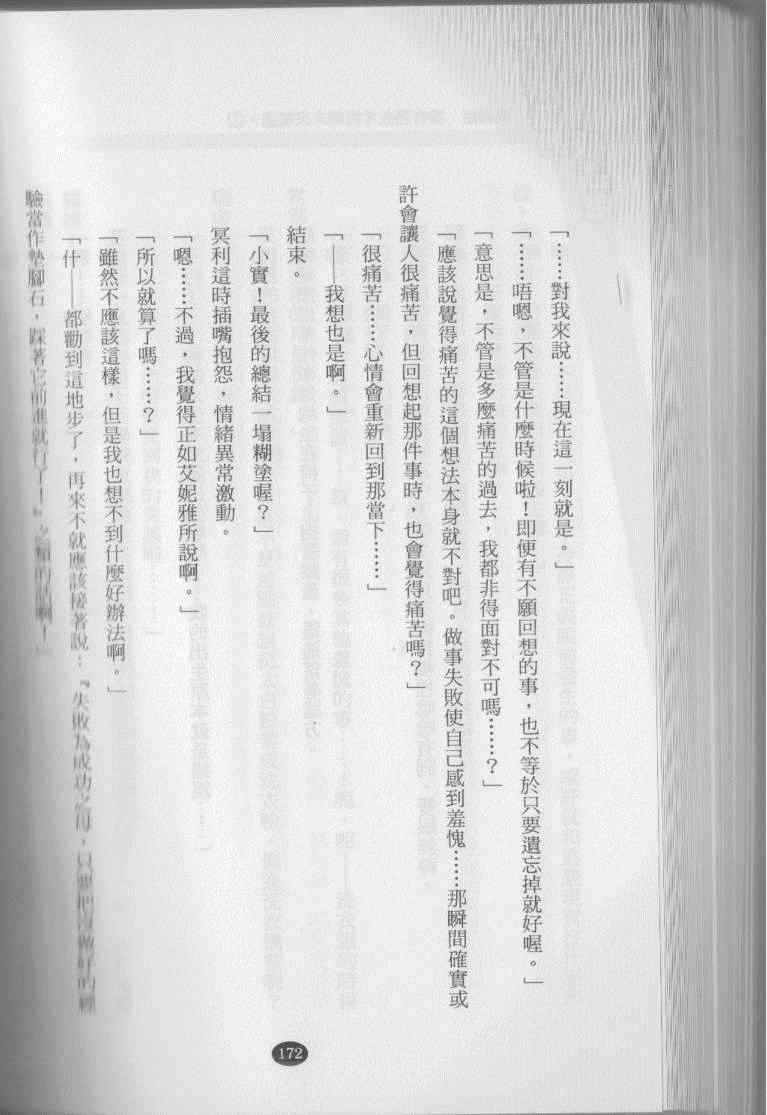 「……對我來說……現在這一刻就是。」
「……唔嗯，不管是什麼時候啦！即便有不願回想的事，也不等於只要遺忘掉就好喔。」
「意思是，不管是多麼痛苦的過去，我都非得面對不可嗎……？」
「應該說覺得痛苦的這個想法本身就不對吧。做事失敗使自己感到羞愧……那瞬間確實或
許會讓人很痛苦，但回想起那件事時，也會覺得痛苦嗎？」
「很痛苦……心情會重新回到那當下……」
「——我想也是啊。」
結束。
「小實！最後的總結一塌糊塗喔？」
冥利這時插嘴抱怨，情緒異常激動。
「嗯……不過，我覺得正如艾妮雅所說啊。」
「所以就算了嗎……？」
「雖然不應該這樣，但是我也想不到什麼好辦法啊。」
「什——都勸到這地步了，再來不就應該接著說：『失敗為成功之母，只要把沒做好的經
驗當作墊腳石，踩著它前進就行了！』之類的話啊！」
172